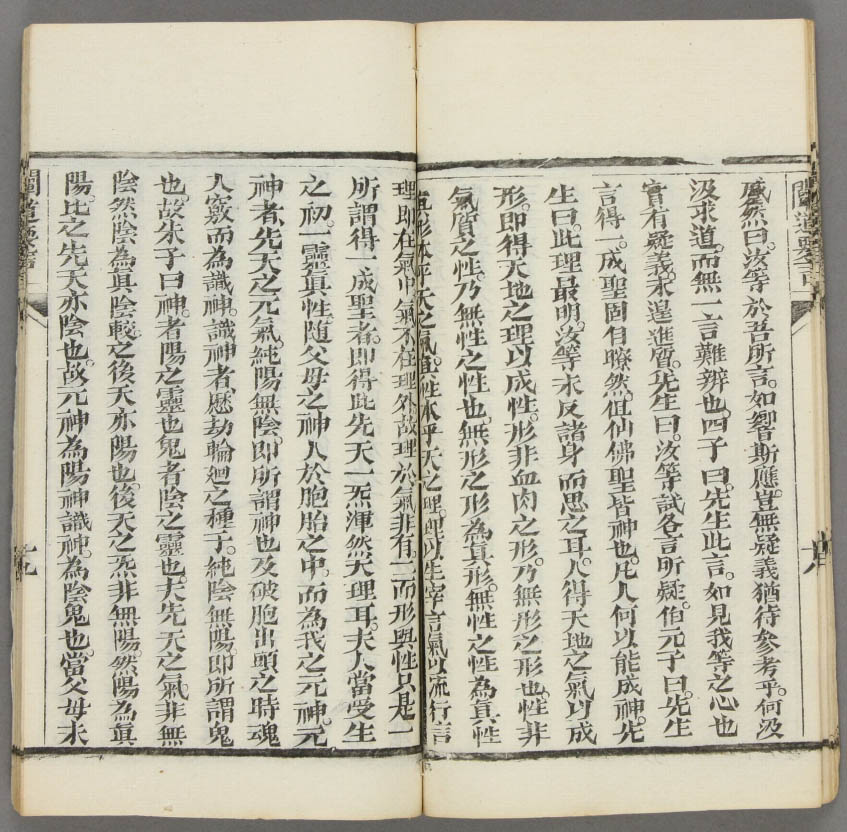 闡道要言
感然曰。汝等於吾所言。如響斯應。豈無疑義猶待參考乎。何汲
汲求道。而無一言難辨也。四子曰。先生此言。如見我等之心也
實有疑義。未遑進質。先生曰。汝等試各言所疑。伯元子曰。先生
言得一成聖。固自瞭然。但仙佛聖皆神也。凡人何以能成神。先
生曰。此理最明。汝等未反諸身而思之耳。人得天地之氣以成
形。即得天地之理以成性。形非血肉之形。乃無形之形也。性非
氣質之性。乃無性之性也。無形之形為真形。無性之性為真性
真形本乎天之氣。真性本乎天之理。理以生宰言。氣以流行言
理即在氣中。氣不在理外。故理於氣非有二。而形與性只是一
所謂得一成聖者。即得此先天一炁渾然天理耳。夫人當受生
之初。一靈真性。隨父母之神。入於胞胎之中。而為我之元神。元
神者。先天之元氣。純陽無陰。即所謂神也。及破胞出頭之時。魂
入竅而為識神。識神者。歷劫輪廻之種子。純陰無陽。即所謂鬼
也。故朱子曰。神者陽之靈也。鬼者陰之靈也。夫先天之氣非無
陰。然陰為真陰。較之後天亦陽也。後天之炁非無陽。然陽為真
陽。比之先天亦陰也。故元神為陽神。識神為陰鬼也。當父母未
闡道要言
九